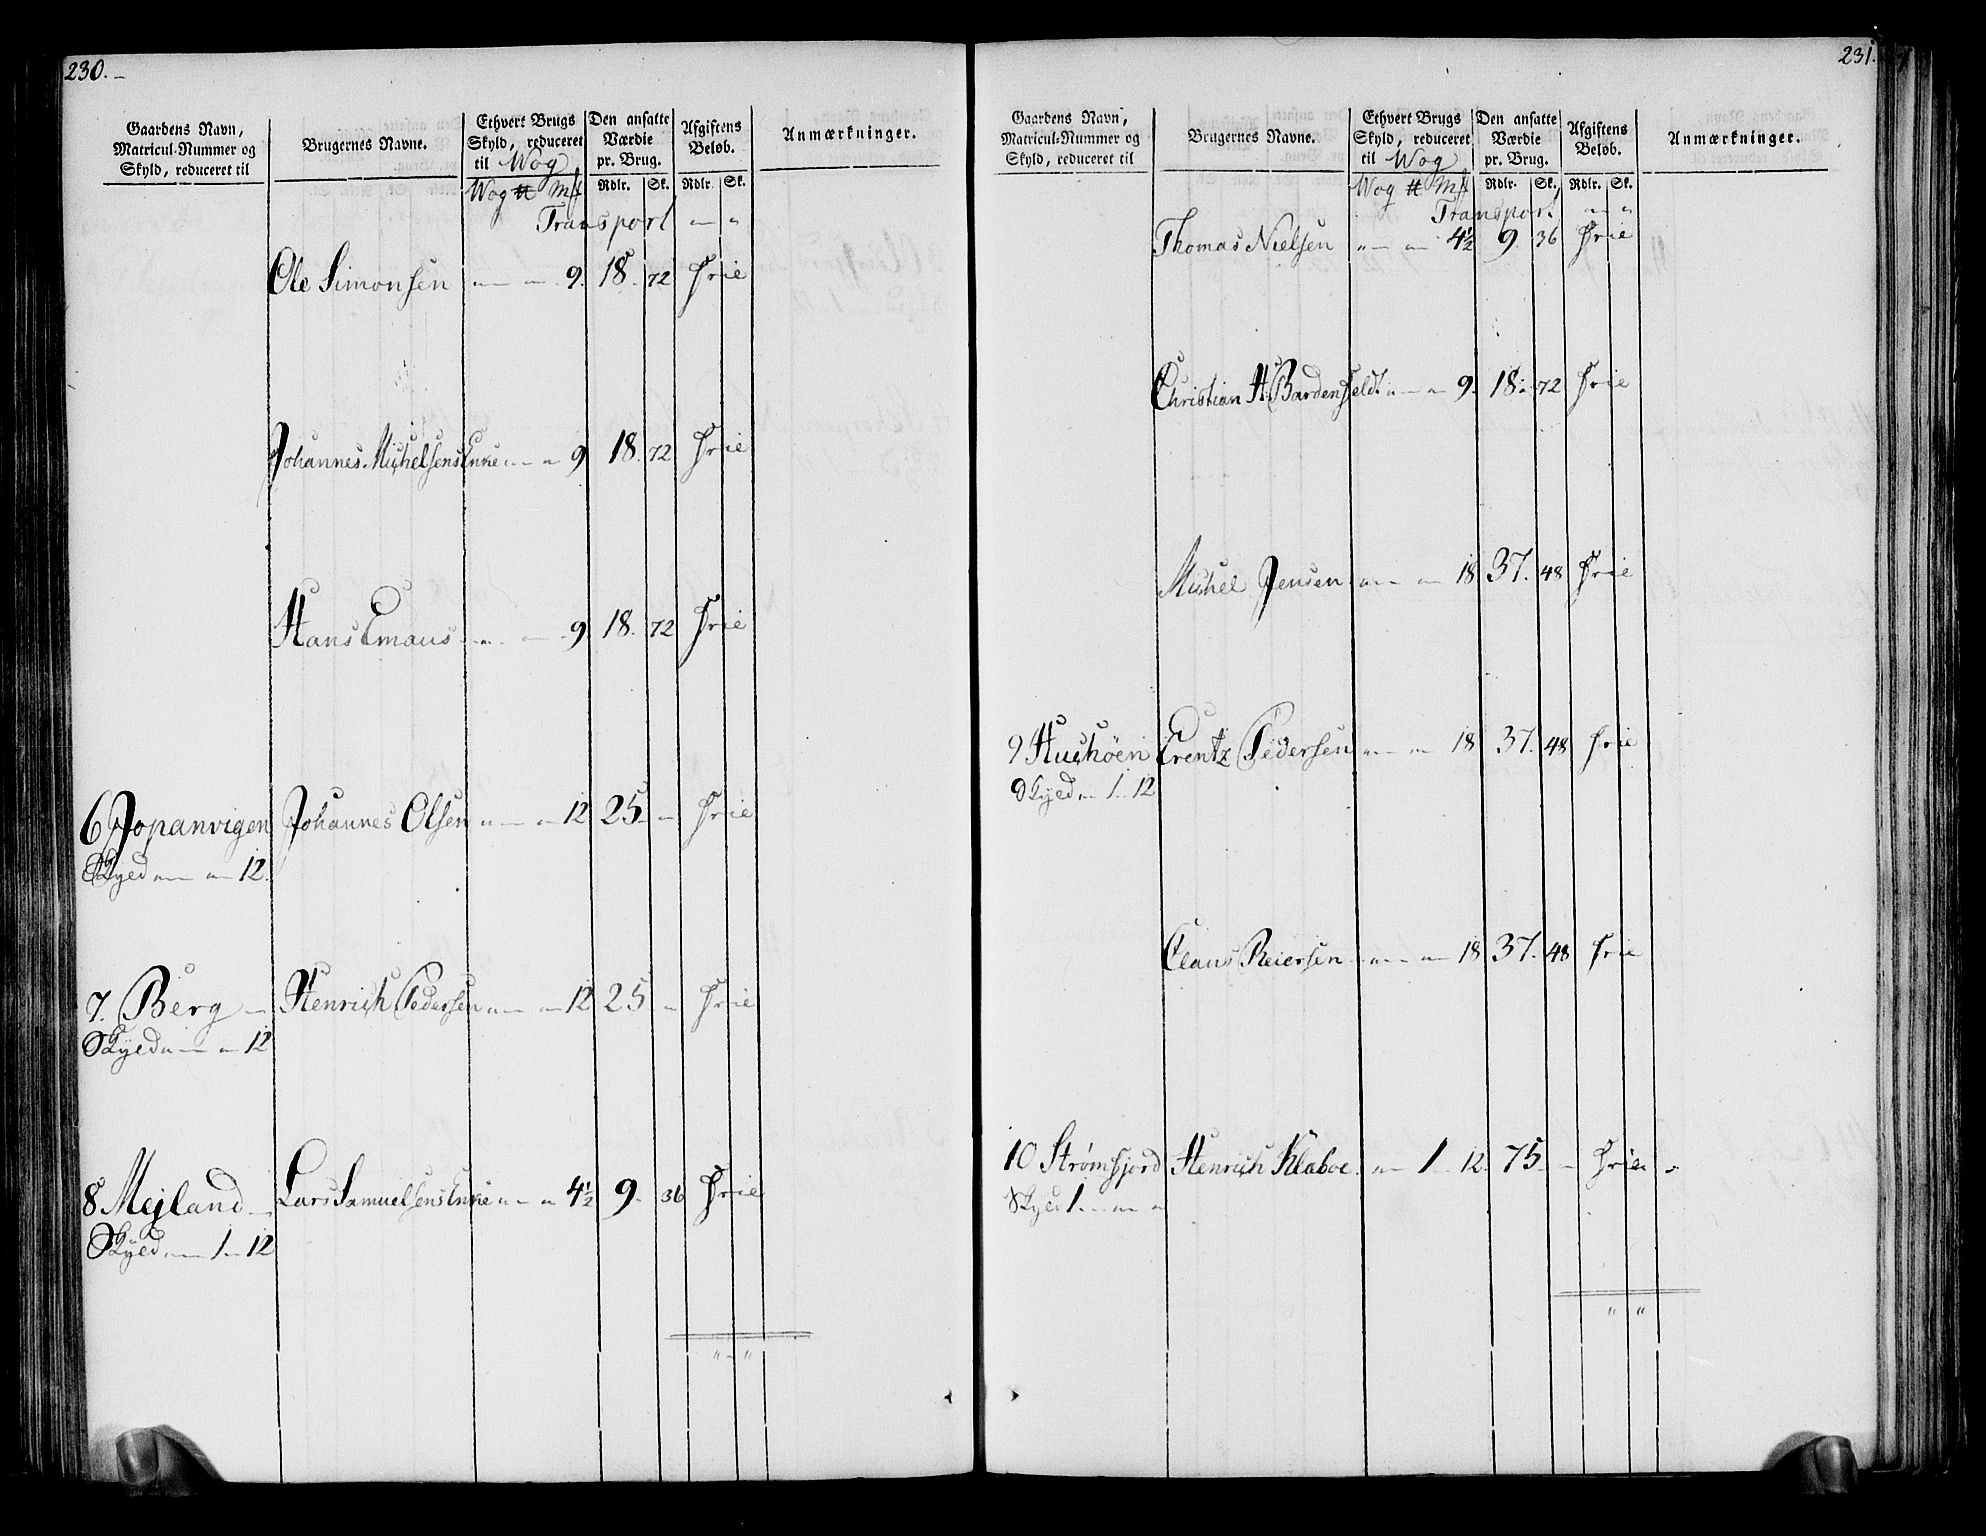 230.
Gaardens Navn, Matricul-Nummer og Skyld, reduceret til
Brugernes Navne.
Ethvert Brugs Skyld, reduceret til Wog
Den ansatte Værdie pr. Brug.
Afgiftens Beløb.
Anmærkninger.
Wog ℔ Mk Rdlr. Sk. Rdlr. Sk.
Transport " "
Ole Simonsen " — " — 9. 18. 72 Frie
Johannes Michelsens Enke " — " 9 18. 72 Frie
Hans Emaus " — 9. 18. 72 Frie
6 Jopanvigen Johannes Olsen " — " 12 25 — " Frie
Skyld " — " 12.
7. Berg — Henrich Pedersen " — " 12 25 — " Frie
Skyld " — " 12
8 Mejland — Lars Samuelsens Enke " — " 4½ 9. 36 Frie
Skyld " — 1 — 12
" — "
231.
Gaardens Navn, Matricul-Nummer og Skyld, reduceret til
Brugernes Navne.
Ethvert Brugs Skyld, reduceret til Wog
Den ansatte Værdie pr. Brug.
Afgiftens Beløb.
Anmærkninger.
Wog ℔ Mk Rdlr. Sk. Rdlr. Sk.
Transport " "
Thomas Nielsen " — " 4½ 9. 36 Frie
Christian A. Bardenfeldt " — " 9. 18. 72 Frie
Michel Jensen " — " 18 37. 48 Frie
9 Hushöen Erentz Pedersen " — " 18 37. 48 Frie
Skyld " 1 — 12
Claus Reiersen " — " 18 37. 48 Frie
10 Strømfjord Henrich Klæboe. " — 1 — 12. 75 — " Frie "
Skyld 1 — " — "
" "